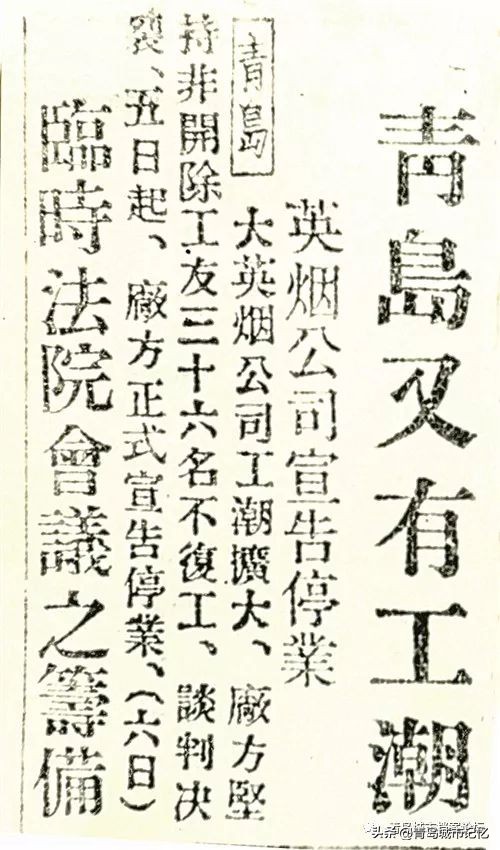 青島又有工潮
英烟公司宣告停業
青島
大英烟公司工潮擴大、廠方堅
持非開除工友三十六名不復工、談判决
裂、五日起、廠方正式宣告停業、(六日)
臨時法院會議之籌備
头条@青岛城市记忆